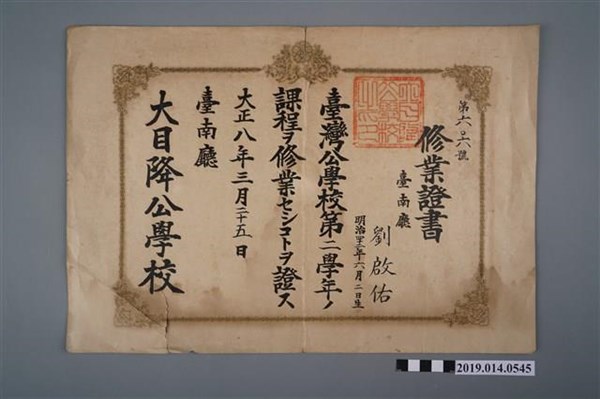 第六〇六號
修業證書
臺南廳
劉啟佑
明治四十三年六月二日生
臺灣公學校第二學年ノ
課程ヲ修業セシコトヲ證ス
大正八年三月二十五日
臺南廳
大目降公學校
2019.014.0545